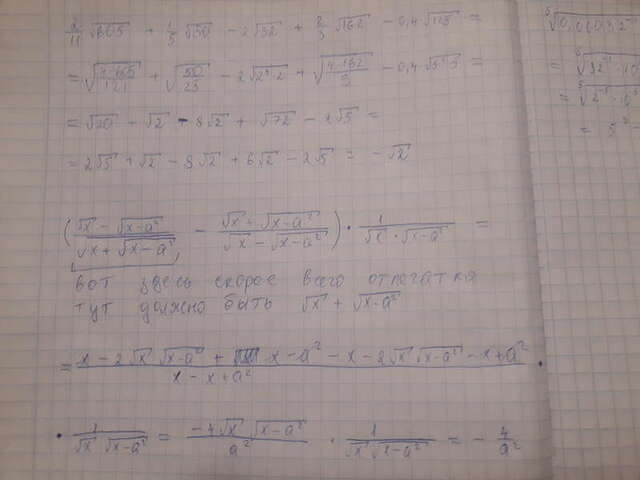 2/11 √605 + 1/5 √50 - 2√32 + 2/3 √162 - 0,4 √125 =
= √(4·605/121) + √(50/25) - 2√(2⁴·2) + √(4·162/9) - 0,4 √(5²·5) =
= √20 + √2 - 8√2 + √72 - 2√5 =
= 2√5 + √2 - 8√2 + 6√2 - 2√5 = -√2
((√x - √(x-a²))/(√x + √(x-a²)) - (√x + √(x-a²))/(√x - √(x-a²))) · 1/(√x · √(x-a²)) =
вот здесь скорее всего опечатка
тут должно быть √x + √(x-a²)
= (x - 2√x √(x-a²) + x - a² - x - 2√x √(x-a²) - x + a²)/(x - x + a²) ·
· 1/(√x √(x-a²)) = (-4√x √(x-a²))/a² · 1/(√x √(x-a²)) = -4/a²